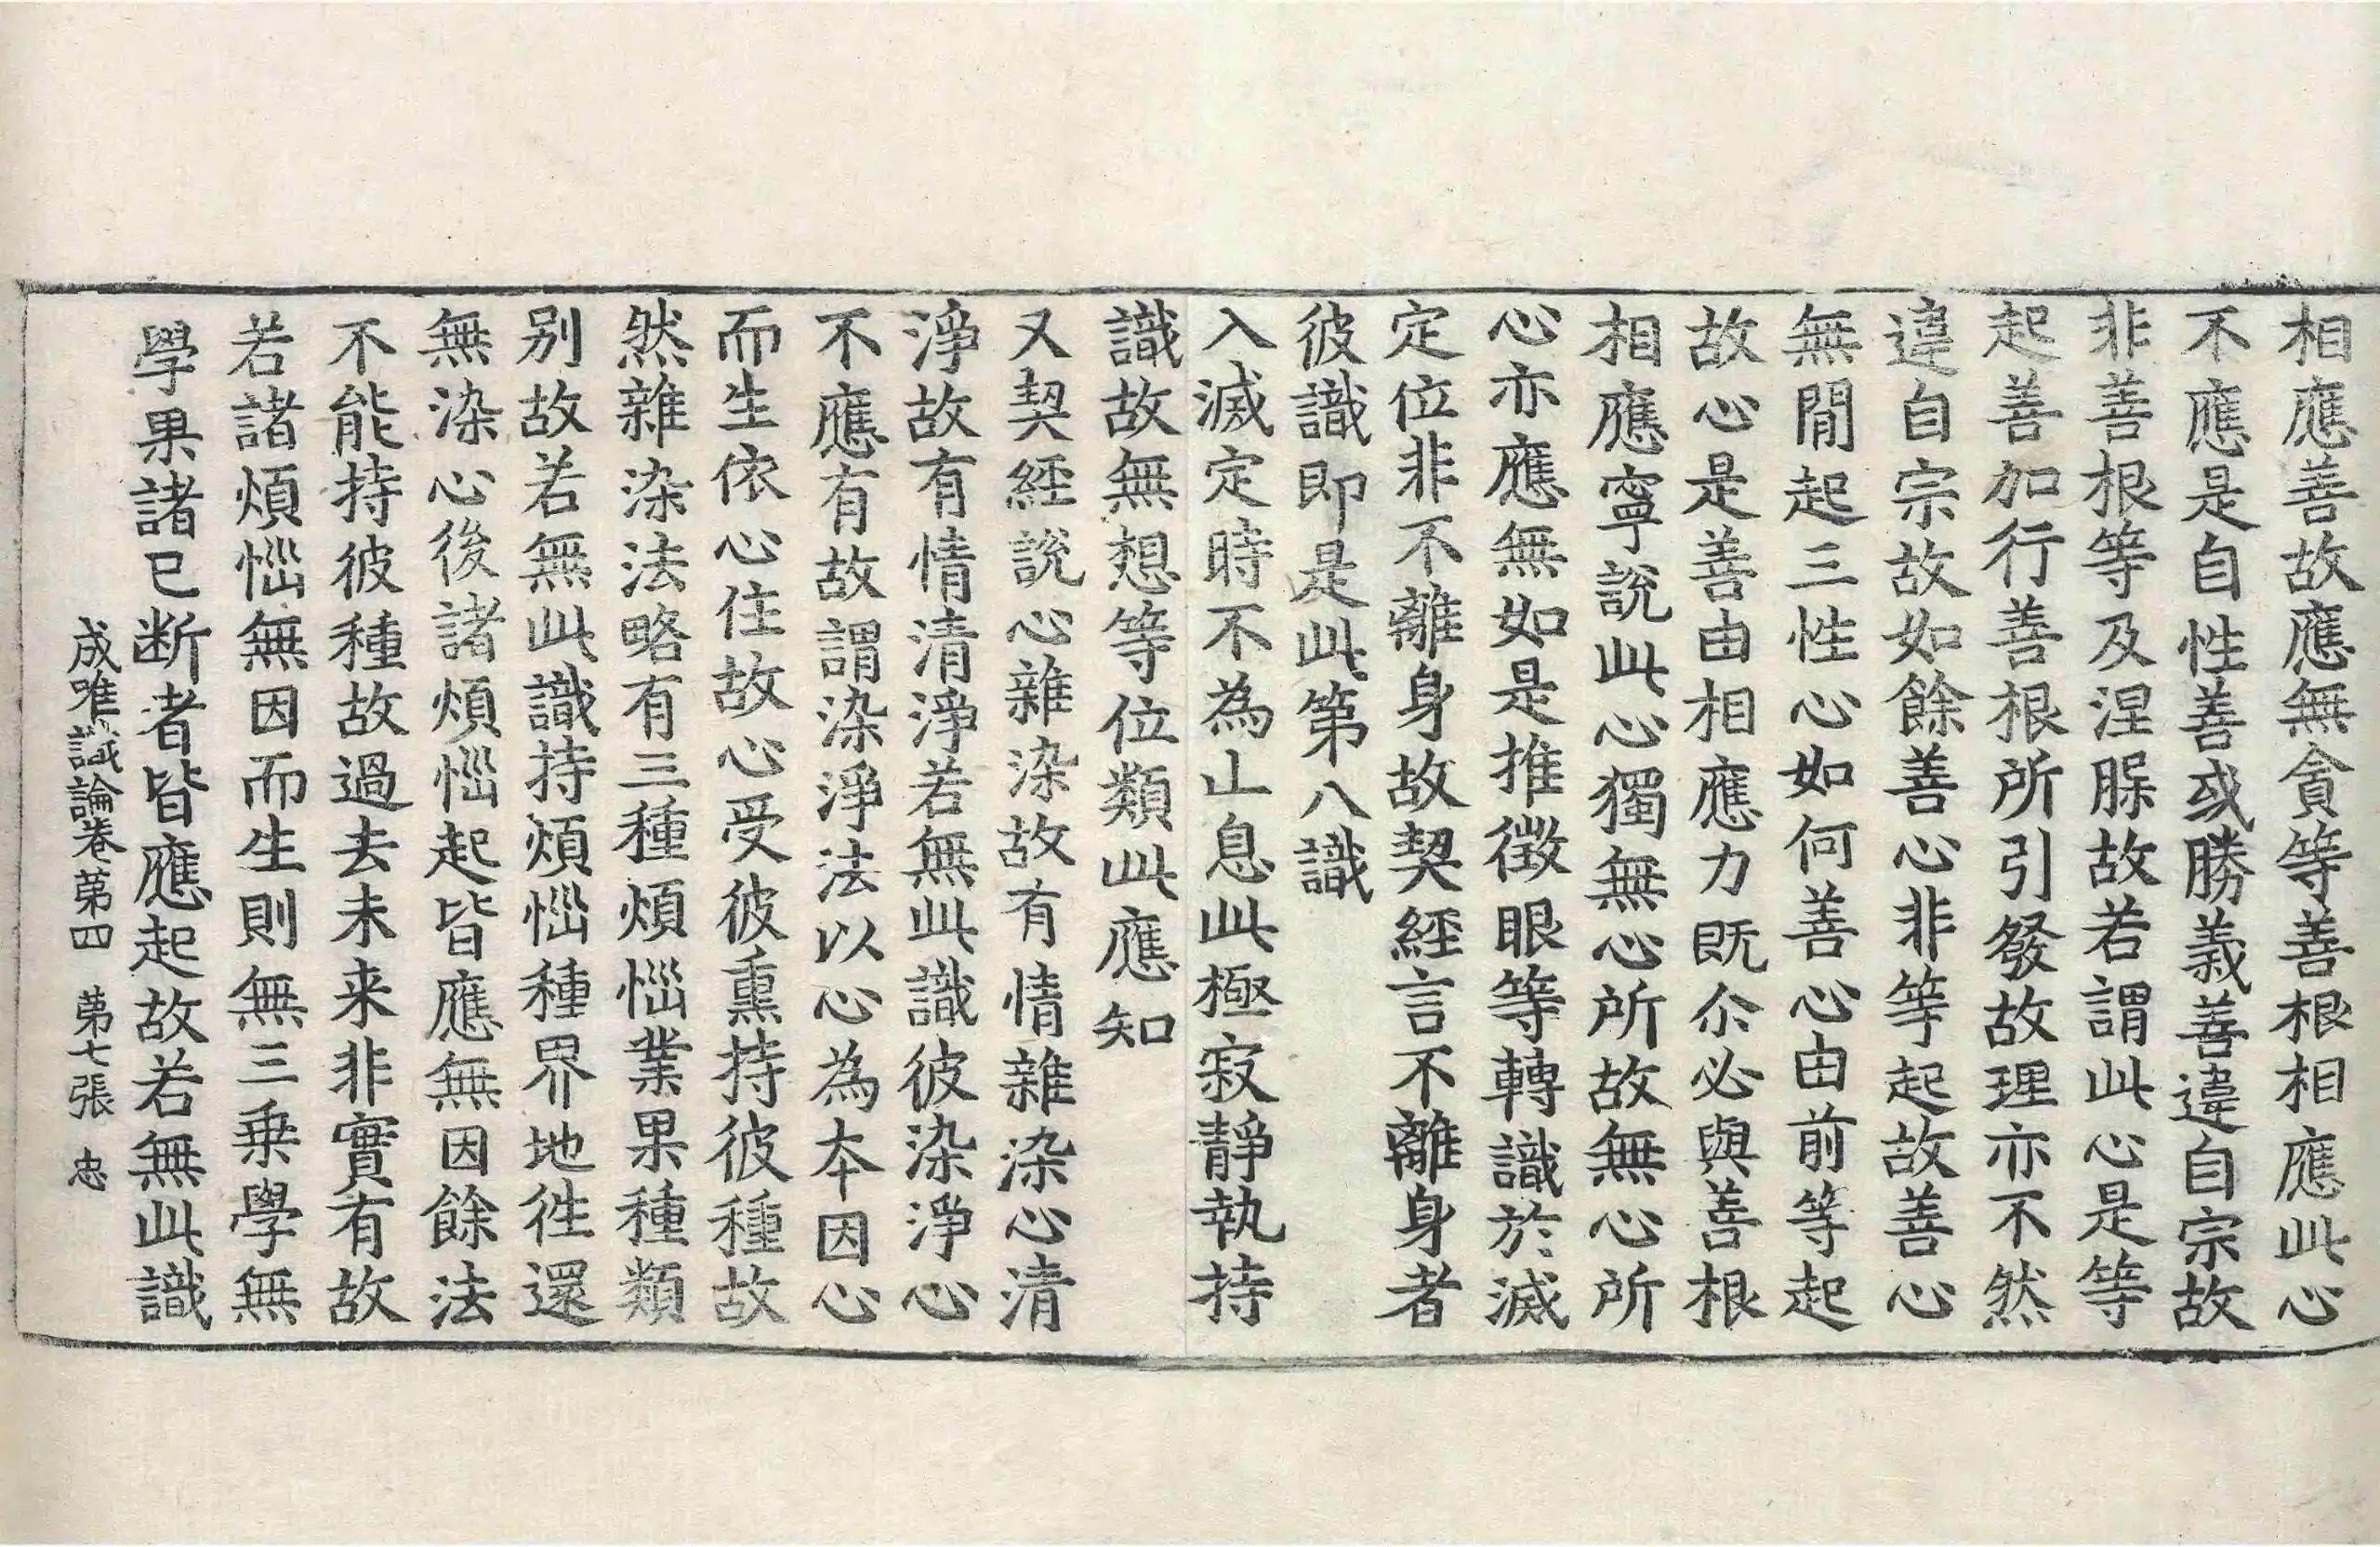 相應善故應無貪等善根相應此心
不應是自性善或勝義善違自宗故
非善根等及涅脲故若謂此心是等
起善加行善根所引發故理亦不然
違自宗故如餘善心非等起故善心
無間起三性心如何善心由前等起
故心是善由相應力既尒必與善根
相應寧說此心獨無心所故無心所
心亦應無如是推徵眼等轉識於滅
定位非不離身故契經言不離身者
彼識即是此第八識
入滅定時不為止息此極寂靜執持
識故無想等位類此應知
又契經說心雜染故有情雜染心清
淨故有情清淨若無此識彼染淨心
不應有故謂染淨法以心為本因心
而生依心住故心受彼熏持彼種故
然雜染法略有三種煩惱業果種類
別故若無此識持煩惱種界地往還
無染心後諸煩惱起皆應無因餘法
不能持彼種故過去未来非實有故
若諸煩惱無因而生則無三乗學無
學果諸已断者皆應起故若無此識
成唯識論卷苐四 苐七張 忠